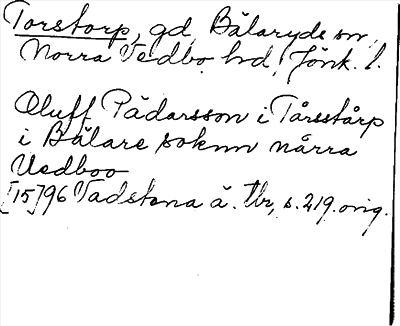 Torstorp, gd, Bälaryds sn,
Norra Vedbo hd, Jönk. l.
Oluff Pädarsson i Tårsstårp
i Bälare soknn nårra
Vedboo
[15]96 Vadstena ä. tbr, s. 219. orig.